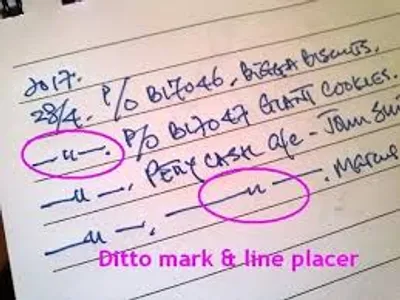 2017.
28/4. P/O BL7046. BIGGA BISCUITS.
—〃—. P/O BL7047 GIANT COOKIES.
—〃—. PETTY CASH a/c - JOHN
—〃—. ———〃——. MARCUS
Ditto mark & line placer